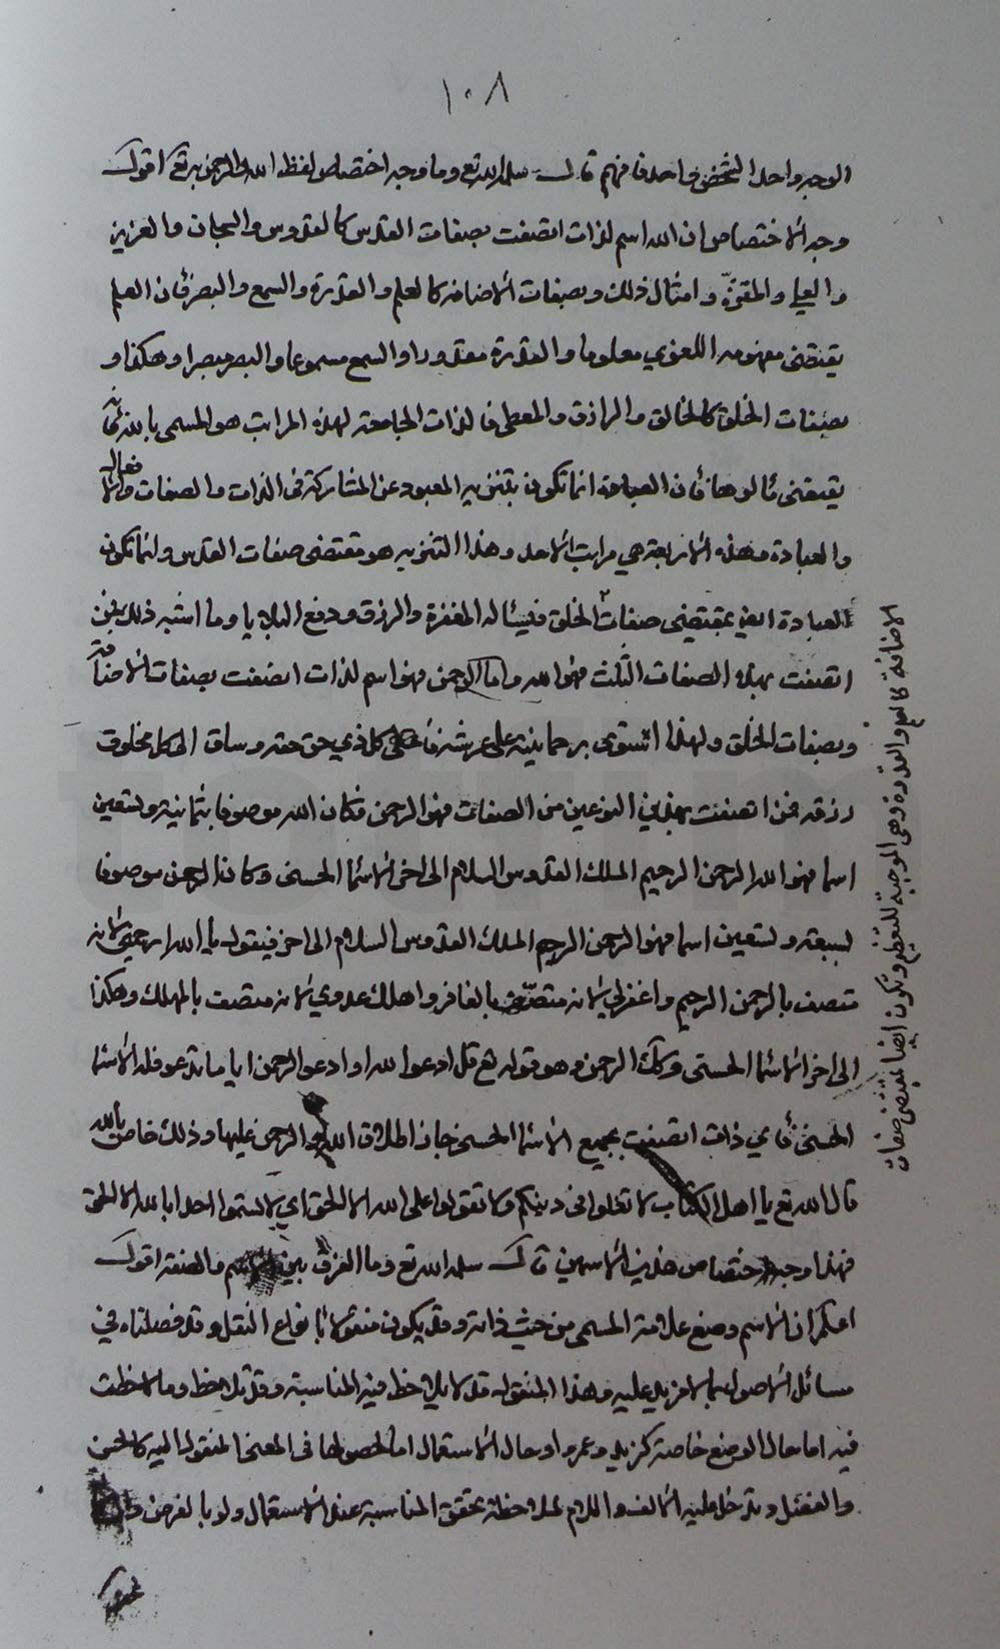 ١٠٨
الوجه واحد الشخص واحد فافهم قال سلمه الله تع وما وجه اختصاص لفظ الله والرحمن به تع اقول
وجه الاختصاص ان الله اسم لذات اتصفت بصفات القدس كالقدوس والسبحان والعزيز
والعلي والمقدّس وامثال ذلك وبصفات الاضافه كالعلم والقدرة والسمع والبصر فان العلم
يقتضي مفهومه اللغوي معلوما والقدرة مقدورا والسمع مسموعا والبصر مبصرا وهكذا و
بصفات الخلق كالخالق والرازق والمعطي فالذات الجامعة لهذه المراتب هو المسمى بالله فانه
يقتضي مألوها فان العبادة انما تكون بتنزيه المعبود عن المشاركة في الذات والصفات والافعال
والعبادة وهذه الاربعة هي مراتب الاحد وهذا التنزيه هو مقتضى صفات القدس وانما تكون
العبادة ايض بمقتضى صفات الخلق فيسأله المغفرة والرزق ودفع البلايا وما اشبه ذلك فمن
اتصفت بهذه الصفات الثلث فهو الله واما الرحمن فهو اسم لذات اتصفت بصفات الاضافة
وبصفات الخلق ولهذا استوى برحمانيته على عرشه فاعطى كل ذي حق حقه وساق الى كل مخلوق
رزقه فمن اتصفت بهذين النوعين من الصفات فهو الرحمن فكان الله موصوفا بثمانية وتسعين
اسما فهو الله الرحمن الرحيم الملك القدوس السلام الى اخر الاسماء الحسنى وكان الرحمن موصوفا
بسبعة وتسعين اسما فهو الرحمن الرحيم الملك القدوس السلام الى اخر فيقول يا الله ارحمني لانه
متصف بالرحمن الرحيم واغفر لي لانه متصف بالغافر واهلك عدوي لانه متصف بالمهلك وهكذا
الى اخر الاسماء الحسنى وكك الرحمن وهو قوله تع قل ادعوا الله او ادعو الرحمن ايا ما تدعو فله الاسماء
الحسنى فاي ذات اتصفت بجميع الاسماء الحسنى جاز اطلاق الله والرحمن عليها وذلك خاص بالله
قال الله تع يا اهل الكتاب لا تغلوا في دينكم ولا تقولوا على الله الا الحق اي لا تسموا احدا بالله الا الحق
فهذا وجه اختصاص هذين الاسمين قال سلمه الله تع وما الفرق بين الاسم والصفة اقول
اعلم ان الاسم وضع علامة المسمى من حيث ذاته وقد يكون منقولا بانواع النقل وقد فصلناه في
مسائل الاصول بما لا مزيد عليه وهذا المنقول قد لا يلاحظ فيه المناسبة وقد تلاحظ وما لاحظت
فيه اما حال الوضع خاصة كزيد وعمرو او حال الاستعمال اما لحصولها في المعنى المنقول اليه كالحسن
والفضل وتدخل عليه الالف واللام لملاحظة تحقق المناسبة عند الاستعمال ولو بالفرض
الاضافة كالعلم والقدرة وهي الموجبة للتعظيم وتكون ايضا بمقتضى صفات